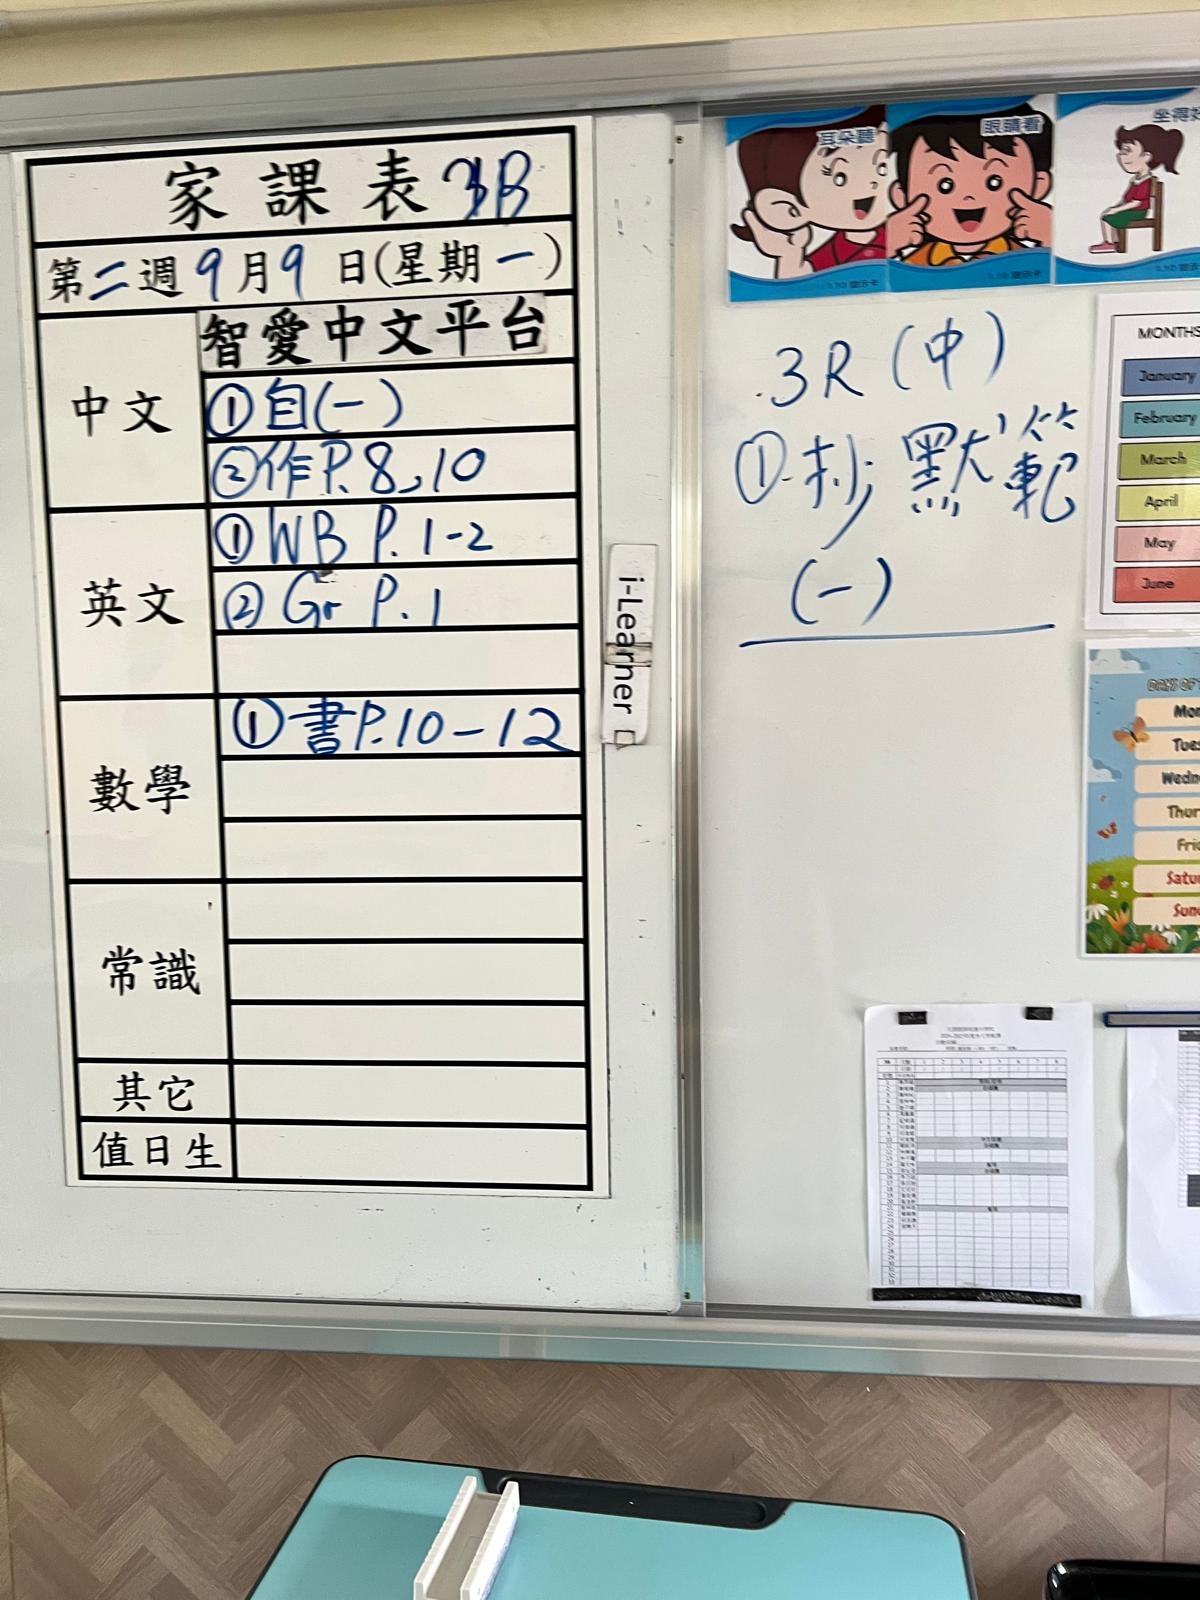 家課表 3B
第二週 9月9日(星期一)
中文
智愛中文平台
①自(一)
②作P.8,10
英文
①WB P.1-2
②Gr P.1
數學
①書P.10-12
常識
其它
值日生
i-Learner
耳朵聽
眼睛看
坐得好
3R(中)
①抄默範
(一)
MONTHS
January
February
March
April
May
June
DAYS OF
Mon
Tues
Wedn
Thur
Fri
Satu
Sun